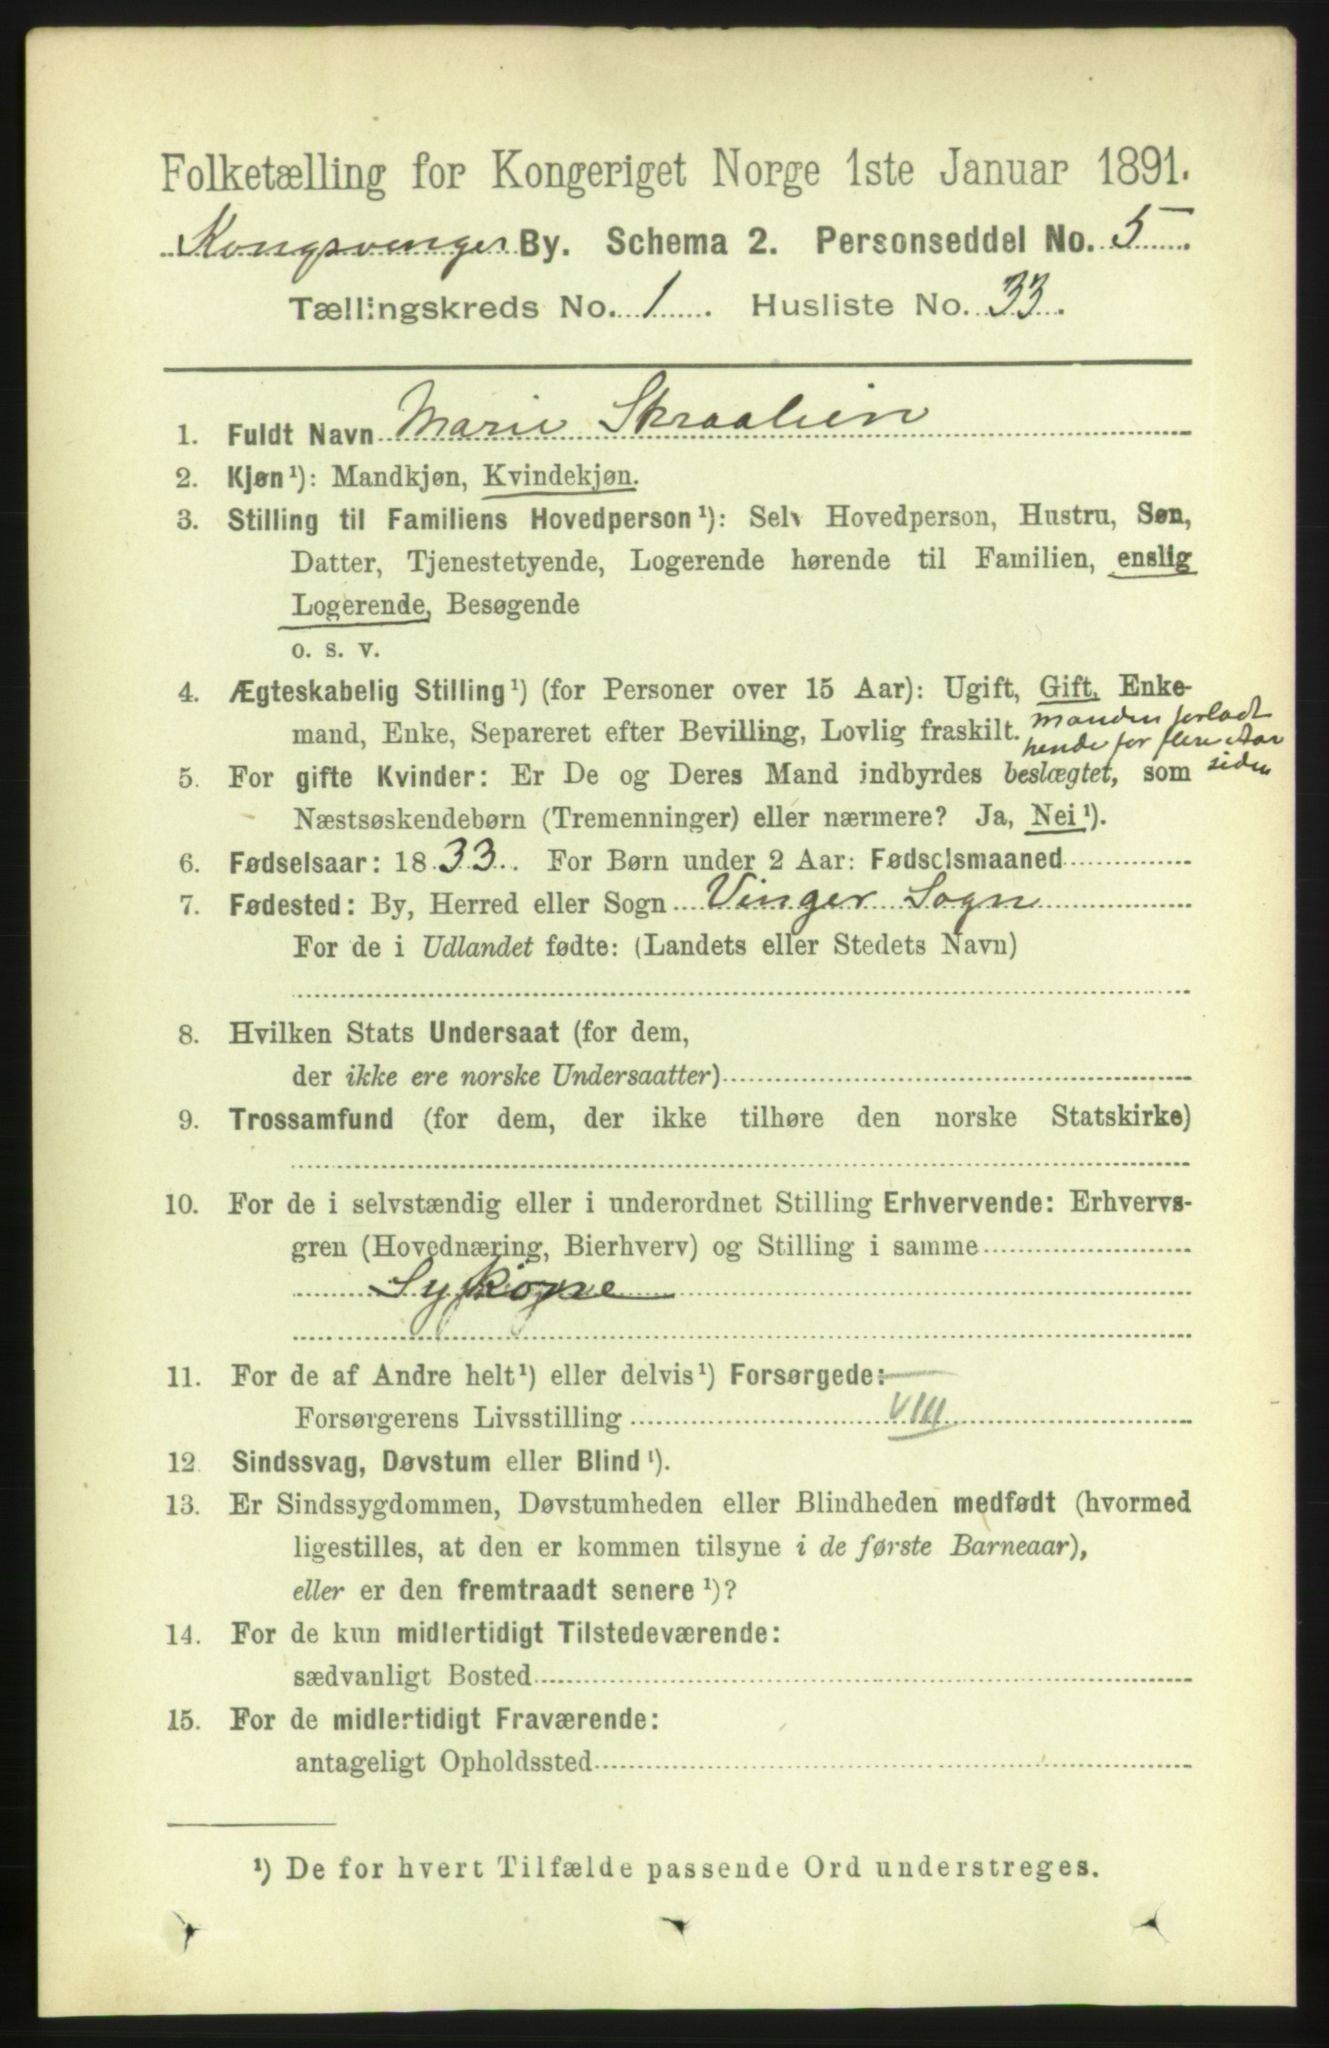 Folketælling for Kongeriget Norge 1ste Januar 1891.
Kongsvinger By. Schema 2. Personseddel No. 5
Tællingskreds No. 1. Husliste No. 33.
1. Fuldt Navn Marie Skraalien
2. Kjøn¹): Mandkjøn, Kvindekjøn.
3. Stilling til Familiens Hovedperson¹): Selv Hovedperson, Hustru, Søn,
Datter, Tjenestetyende, Logerende hørende til Familien, enslig
Logerende, Besøgende
o. s. v.
4. Ægteskabelig Stilling¹) (for Personer over 15 Aar): Ugift, Gift, Enke-
mand, Enke, Separeret efter Bevilling, Lovlig fraskilt. Manden forladt
hende for flere Aar
siden
5. For gifte Kvinder: Er De og Deres Mand indbyrdes beslægtet, som
Næstsøskendebørn (Tremenninger) eller nærmere? Ja, Nei¹).
6. Fødselsaar: 1833. For Børn under 2 Aar: Fødselsmaaned
7. Fødested: By, Herred eller Sogn Vinger Sogn
For de i Udlandet fødte: (Landets eller Stedets Navn)
8. Hvilken Stats Undersaat (for dem,
der ikke ere norske Undersaatter)
9. Trossamfund (for dem, der ikke tilhøre den norske Statskirke)
10. For de i selvstændig eller i underordnet Stilling Erhvervende: Erhvervs-
gren (Hovednæring, Bierhverv) og Stilling i samme
Sykone
11. For de af Andre helt¹) eller delvis¹) Forsørgede:
Forsørgerens Livsstilling VIII
12. Sindssvag, Døvstum eller Blind¹).
13. Er Sindssygdommen, Døvstumheden eller Blindheden medfødt (hvormed
ligestilles, at den er kommen tilsyne i de første Barneaar),
eller er den fremtraadt senere¹)?
14. For de kun midlertidigt Tilstedeværende:
sædvanligt Bosted
15. For de midlertidigt Fraværende:
antageligt Opholdssted
¹) De for hvert Tilfælde passende Ord understreges.